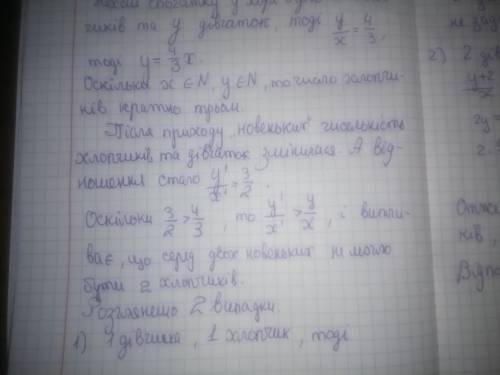 Нехай спочатку у
чиків та y дівчаток, тоді y/x = 4/3,
тоді y = 4/3 x.
Оскільки x ∈ N, y ∈ N, то число хлопчи-
ків кратно трьом.
Після приходу „новеньких" чисельність
хлопчиків та дівчаток змінилася. А від-
ношення стало y'/x' = 3/2.
Оскільки 3/2 > 4/3, то y'/x' > y/x, і випли-
ває, що серед двох новеньких не могло
бути 2 хлопчиків.
Розглянемо 2 випадки.
1) 1 дівчинка, 1 хлопчик, тоді
не
2) 2 дів
y+2
2y =
2
ків